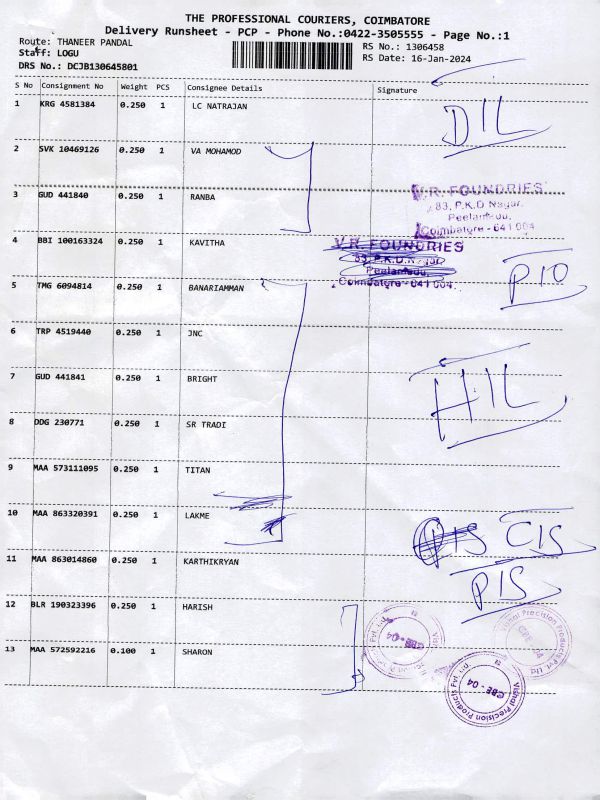 THE PROFESSIONAL COURIERS, COIMBATORE
Delivery Runsheet - PCP - Phone No.:0422-3505555 - Page No.:1
Route: THANEER PANDAL
Staff: LOGU
DRS No.: DCJB130645801
RS No.: 1306458
RS Date: 16-Jan-2024
S No Consignment No Weight PCS Consignee Details Signature
1 KRG 4581384 0.250 1 LC NATRAJAN
DIL
2 SVK 10469126 0.250 1 VA MOHAMOD
3 GUD 441840 0.250 1 RANBA
V.R. FOUNDRIES
83, P.K.D Nagar,
Peelamedu,
Coimbatore - 641 004
4 BBI 100163324 0.250 1 KAVITHA
V.R. FOUNDRIES
83, P.K.D.Nagar
Peelamedu,
Coimbatore - 641 004.
5 TMG 6094814 0.250 1 BANARIAMMAN
PIO
6 TRP 4519440 0.250 1 JNC
7 GUD 441841 0.250 1 BRIGHT
HIL
8 DDG 230771 0.250 1 SR TRADI
9 MAA 573111095 0.250 1 TITAN
10 MAA 863320391 0.250 1 LAKME
CIS
11 MAA 863014860 0.250 1 KARTHIKRYAN
PIS
12 BLR 190323396 0.250 1 HARISH
13 MAA 572592216 0.100 1 SHARON
CBE - 04
Vishal Precision Products Pvt. Ltd.
CBE - 04
Vishal Precision Products Pvt. Ltd.
CBE - 04